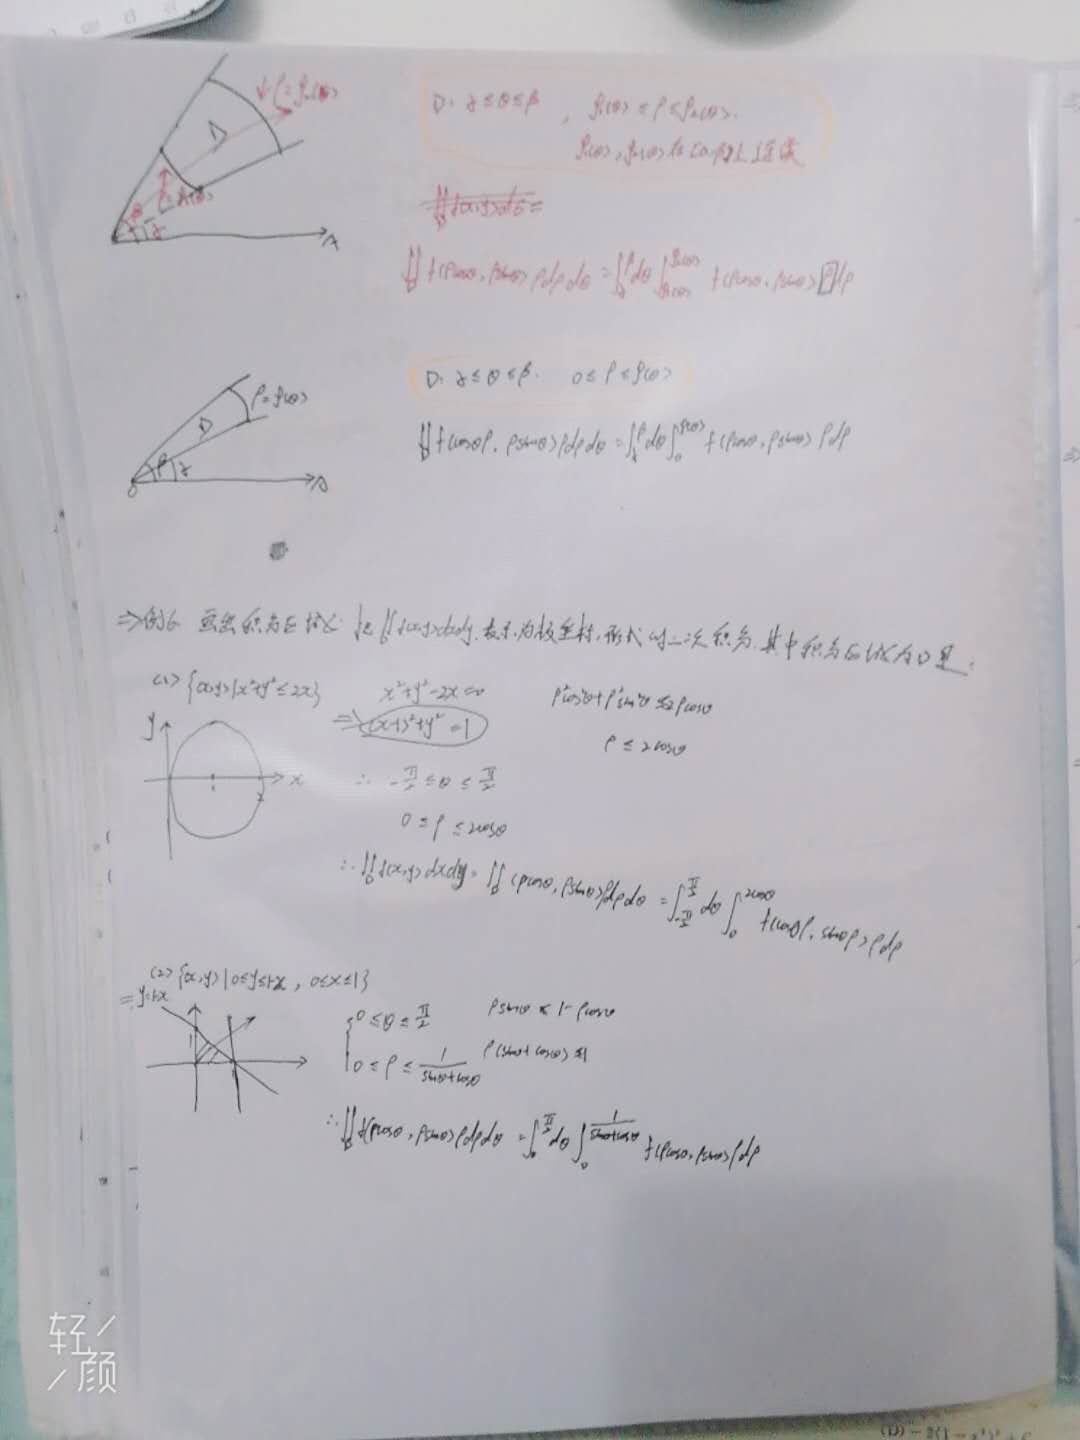 D: α≤θ≤β , φ₁(θ)≤ρ≤φ₂(θ).
φ₁(θ), φ₂(θ)在[α,β]上连续
ρ=φ₂(θ)
D
ρ=φ₁(θ)
β
α
A
∬f(x,y)dσ=
D
∬f(ρcosθ, ρsinθ)ρdρdθ=∫_α^β dθ∫_{φ₁(θ)}^{φ₂(θ)} f(ρcosθ, ρsinθ)ρdρ
D
D: α≤θ≤β. 0≤ρ≤φ(θ)
ρ=φ(θ)
D
β
α
O
∬f(cosθρ, ρsinθ)ρdρdθ=∫_α^β dθ∫_0^{φ(θ)} f(ρcosθ, ρsinθ)ρdρ
D
⇒例6 画出积分区域, 把∬f(x,y)dxdy表示为极坐标形式的二次积分,其中积分区域为D是:
(1) {(x,y)|x²+y²≤2x} x²+y²-2x=0 ρ²cos²θ+ρ²sin²θ≤2ρcosθ
⇒(x-1)²+y²=1
ρ≤2cosθ
y
x
1
2
∴ -π/2≤θ≤π/2
0≤ρ≤2cosθ
∴∬f(x,y)dxdy=∬(ρcosθ, ρsinθ)ρdρdθ=∫_{-π/2}^{π/2} dθ∫_0^{2cosθ} f(cosθρ, sinθρ)ρdρ
(2) {(x,y)|0≤y≤1-x, 0≤x≤1}
y=1-x
1
0≤θ≤π/2 ρsinθ≤1-ρcosθ
0≤ρ≤1/(sinθ+cosθ) ρ(sinθ+cosθ)≤1
∴∬f(ρcosθ, ρsinθ)ρdρdθ=∫_0^{π/2} dθ∫_0^{1/(sinθ+cosθ)} f(ρcosθ, ρsinθ)ρdρ
轻
颜